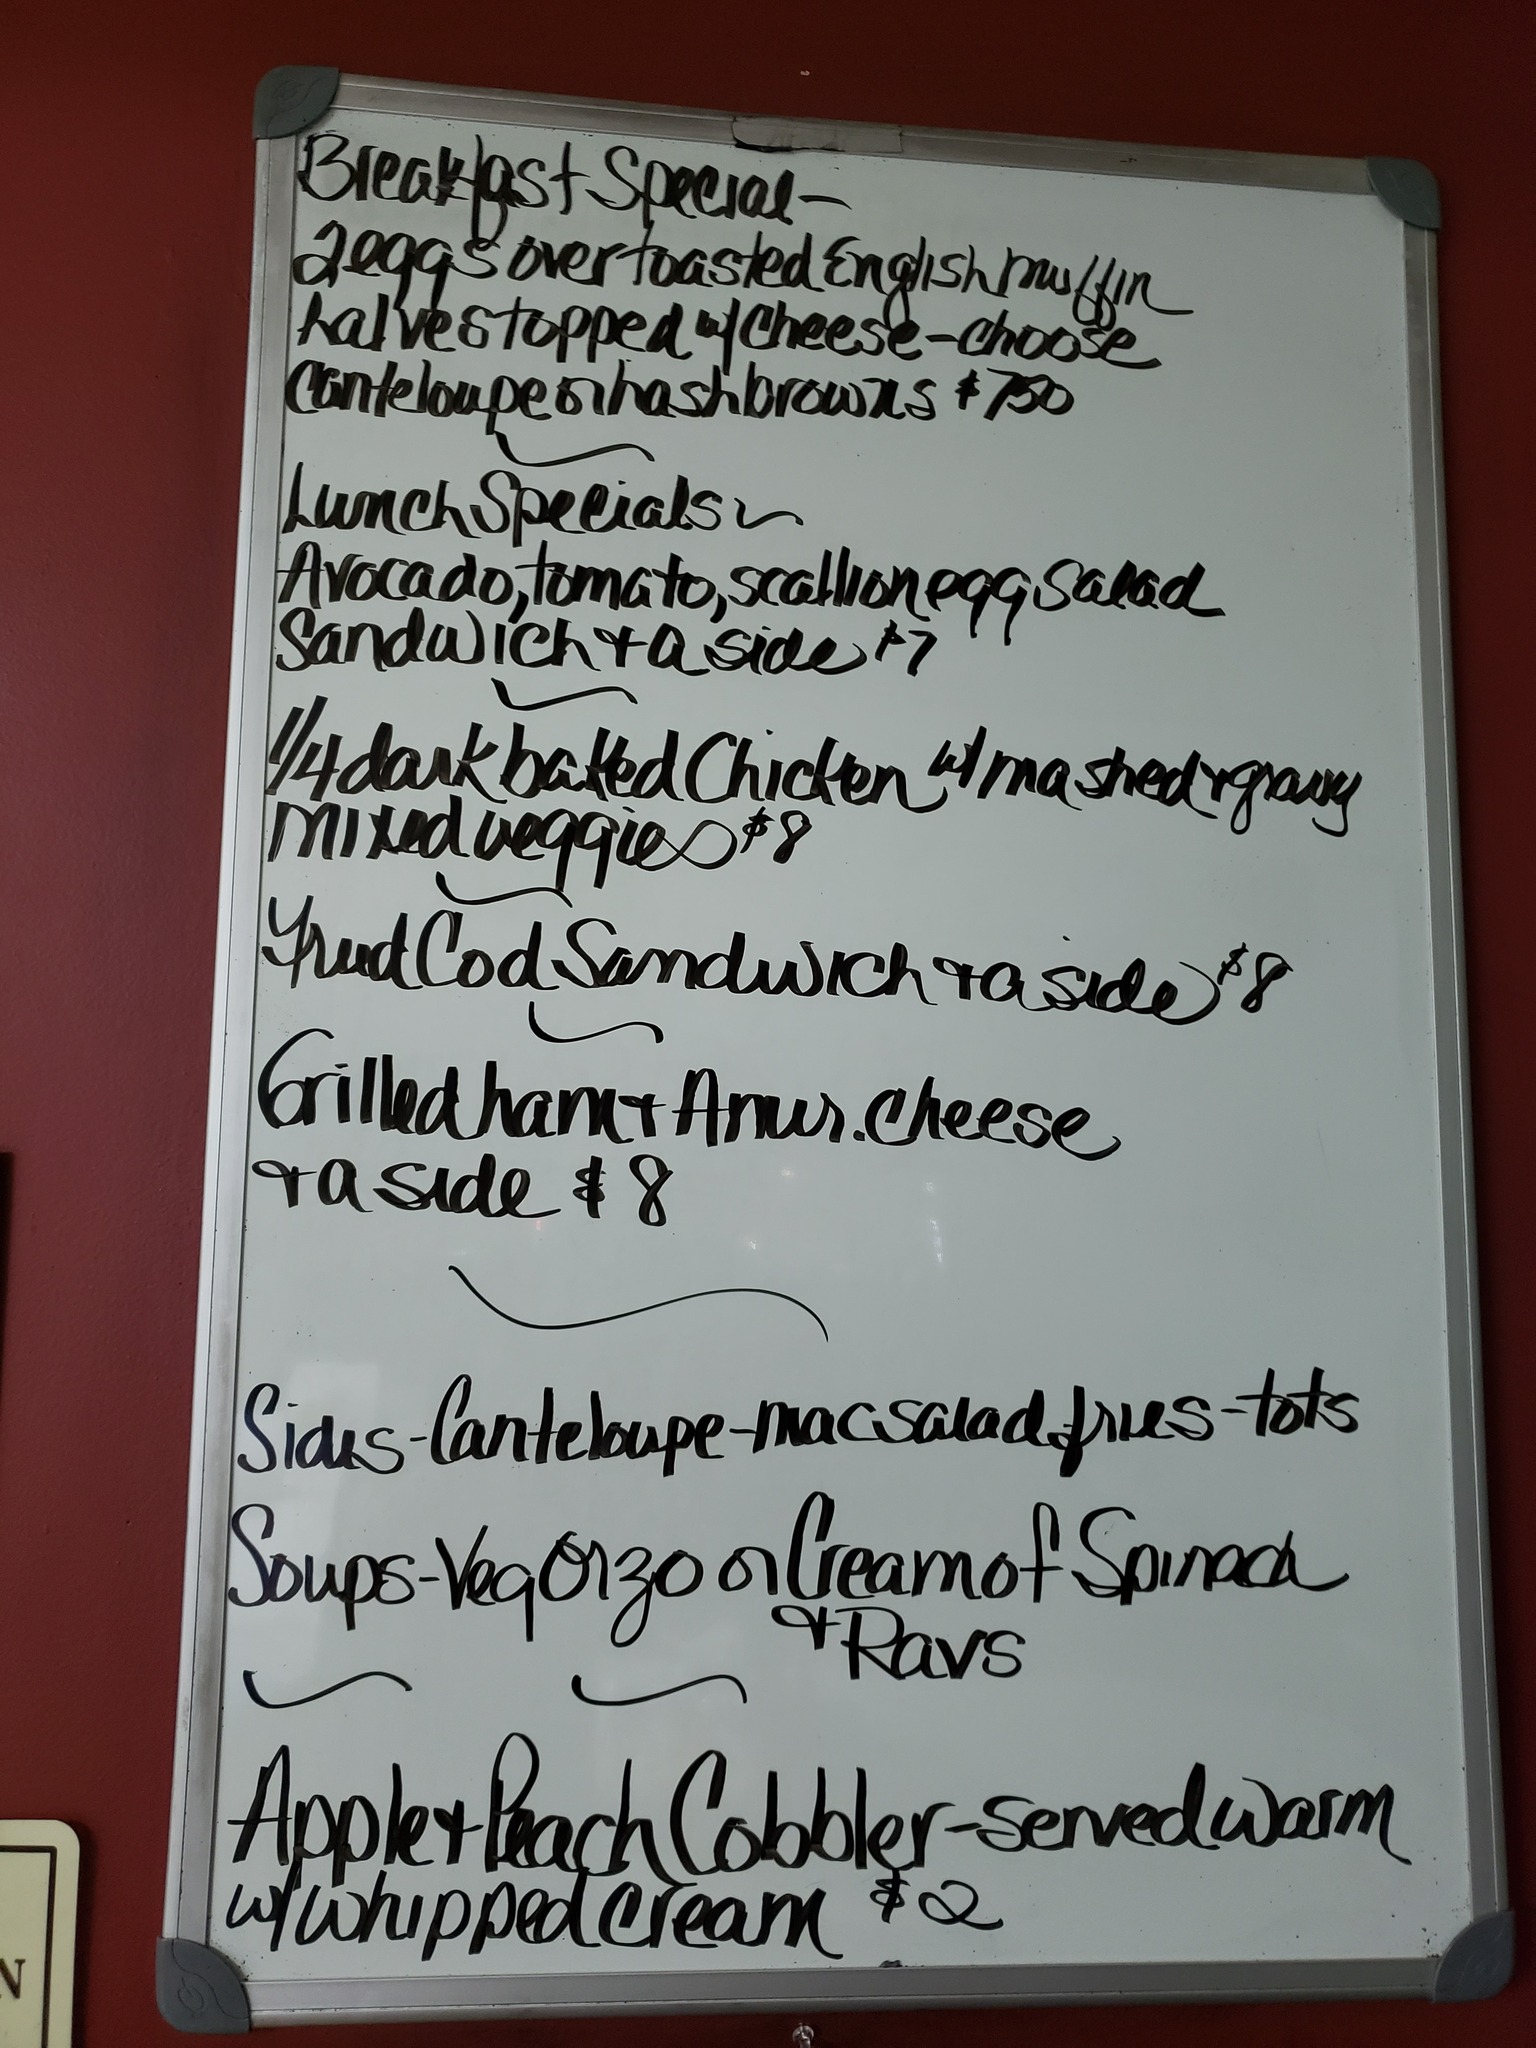 Breakfast Special-
2 eggs over toasted English muffin
halves topped w/ cheese - choose
canteloupe or hashbrowns $750
Lunch Specials ~
Avocado, tomato, scallion egg salad
Sandwich + a side $7
1/4 dark baked Chicken w/ mashed + gravy
mixed veggies $8
Fried Cod Sandwich + a side $8
Grilled ham + Amer. cheese
+ a side $8
Sides - Canteloupe - mac salad, fries - tots
Soups - Veg Orzo or Cream of Spinach
+ Ravs
Apple + Peach Cobbler - served warm
w/ whipped cream $2
N